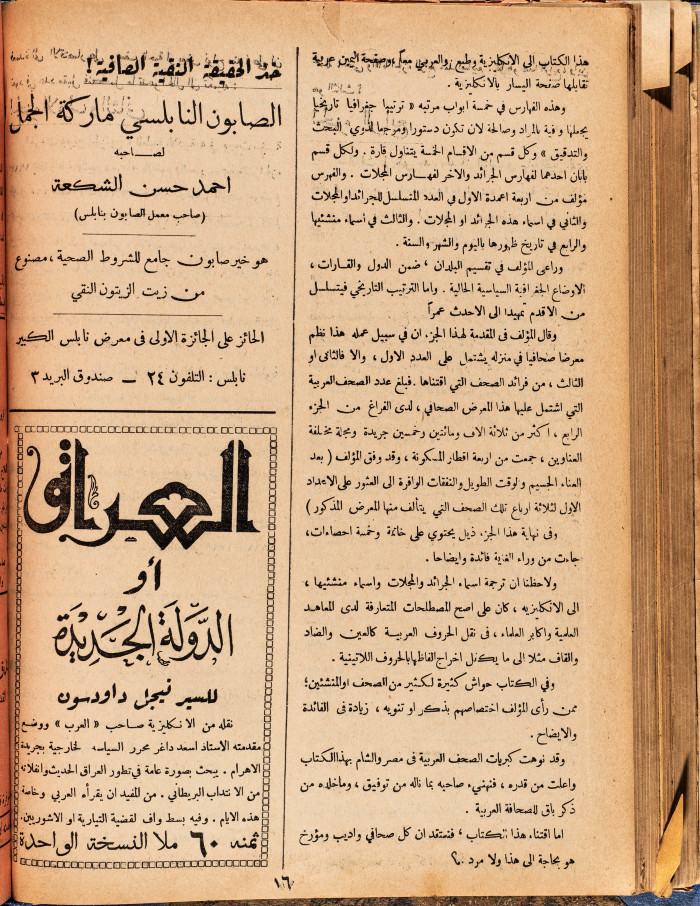 هذا الكتاب الى الانكليزية وطبع والعربي معاً، وصفحة اليمين عربية
تقابلها صفحة اليسار بالانكليزية.
وهذه الفهارس في خمسة ابواب مرتبة « ترتيبا جغرافيا تاريخيا
يجعلها وافية بالمراد وصالحة لان تكون دستورا ومرجعا لذوي البحث
والتدقيق » وكل قسم من الاقسام الخمسة يتناول قارة . ولكل قسم
بابان احدهما لفهارس الجرائد والاخر لفهارس المجلات . والفهرس
مؤلف من اربعة اعمدة الاول في العدد المتسلسل للجرائد او المجلات
والثاني في اسماء هذه الجرائد او المجلات . والثالث في اسماء منشئيها
والرابع في تاريخ ظهورها باليوم والشهر والسنة .
وراعى المؤلف في تقسيم البلدان ' ضمن الدول والقارات ،
الاوضاع الجغرافية السياسية الحالية . واما الترتيب التاريخي فيتسلسل
من الاقدم تمهيدا الى الاحدث عمراً
وقال المؤلف في المقدمة لهذا الجزء ان في سبيل عمله هذا نظم
معرضا صحافيا في منزله يشتمل على العدد الاول ، والا فالثانى او
الثالث ، من فرائد الصحف التي اقتناها . فبلغ عدد الصحف العربية
التي اشتمل عليها هذا المعرض الصحافي ، لدى الفراغ من الجزء
الرابع ، اكثر من ثلاثة الاف ومائتين وخمسين جريدة ومجلة مختلفة
العناوين ، جمعت من اربعة اقطار المسكونة ، وقد وفق المؤلف ( بعد
العناء الجسيم والوقت الطويل والنفقات الوافرة الى العثور على الاعداد
الاول لثلاثة ارباع تلك الصحف التي يتألف منها المعرض المذكور )
وفى نهاية هذا الجزء ذيل يحتوي على خاتمة وخمسة احصاءات،
جاءت من وراء الغاية فائدة وايضاحا .
ولاحظنا ان ترجمة اسماء الجرائد والمجلات واسماء منشئيها ،
الى الانكليزيه ، كان على اصح المصطلحات المتعارفة لدى المعاهد
العلمية واكابر العلماء ، فى نقل الحروف العربية كالعين والضاد
والقاف مثلا الى ما يكفل اخراج الفاظها بالحروف اللاتينية .
وفي الكتاب حواش كثيرة لكثير من الصحف او المنشئين؛
ممن رأى المؤلف اختصاصهم بذكر او تنويه ، زيادة فى الفائدة
والايضاح .
وقد نوهت كبريات الصحف العربية فى مصر والشام بهذا الكتاب
واعلت من قدره ، فنهنيء صاحبه بما ناله من توفيق ، وما خلده من
ذكر باق للصحافة العربية .
اما اقتناء هذا الكتاب ' فنعتقد ان كل صحافي واديب ومؤرخ
هو بحاجة الى هذا ولا مرد .
خذ الحقيقة النقية الصافية !
الصابون النابلسي ماركة الجمل
لصاحبه
احمد حسن الشكعة
(صاحب معمل الصابون بنابلس)
هو خير صابون جامع للشروط الصحية ، مصنوع
من زيت الزيتون النقي
الحائز على الجائزة الاولى فى معرض نابلس الكبير
نابلس : التلفون ٢٤ — صندوق البريد ٣
العراق
أو
الدولة الجديدة
للسير نيجل داودسون
نقله من الانكليزية صاحب « العرب » ووضع
مقدمته الاستاذ اسعد داغر محرر السياسه الخارجية بجريدة
الاهرام . يبحث بصورة عامة في تطور العراق الحديث وانفلاته
من الانتداب البريطاني . من المفيد ان يقرأه العربي وخاصة
هذه الايام . وفيه بسط واف لقضية التيارية او الاشوريين.
ثمنه ٦٠ ملا النسخة الواحدة
١٦